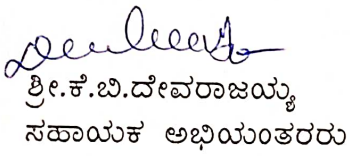 ಶ್ರೀ.ಕೆ.ಬಿ.ದೇವರಾಜಯ್ಯ
ಸಹಾಯಕ ಅಭಿಯಂತರರು